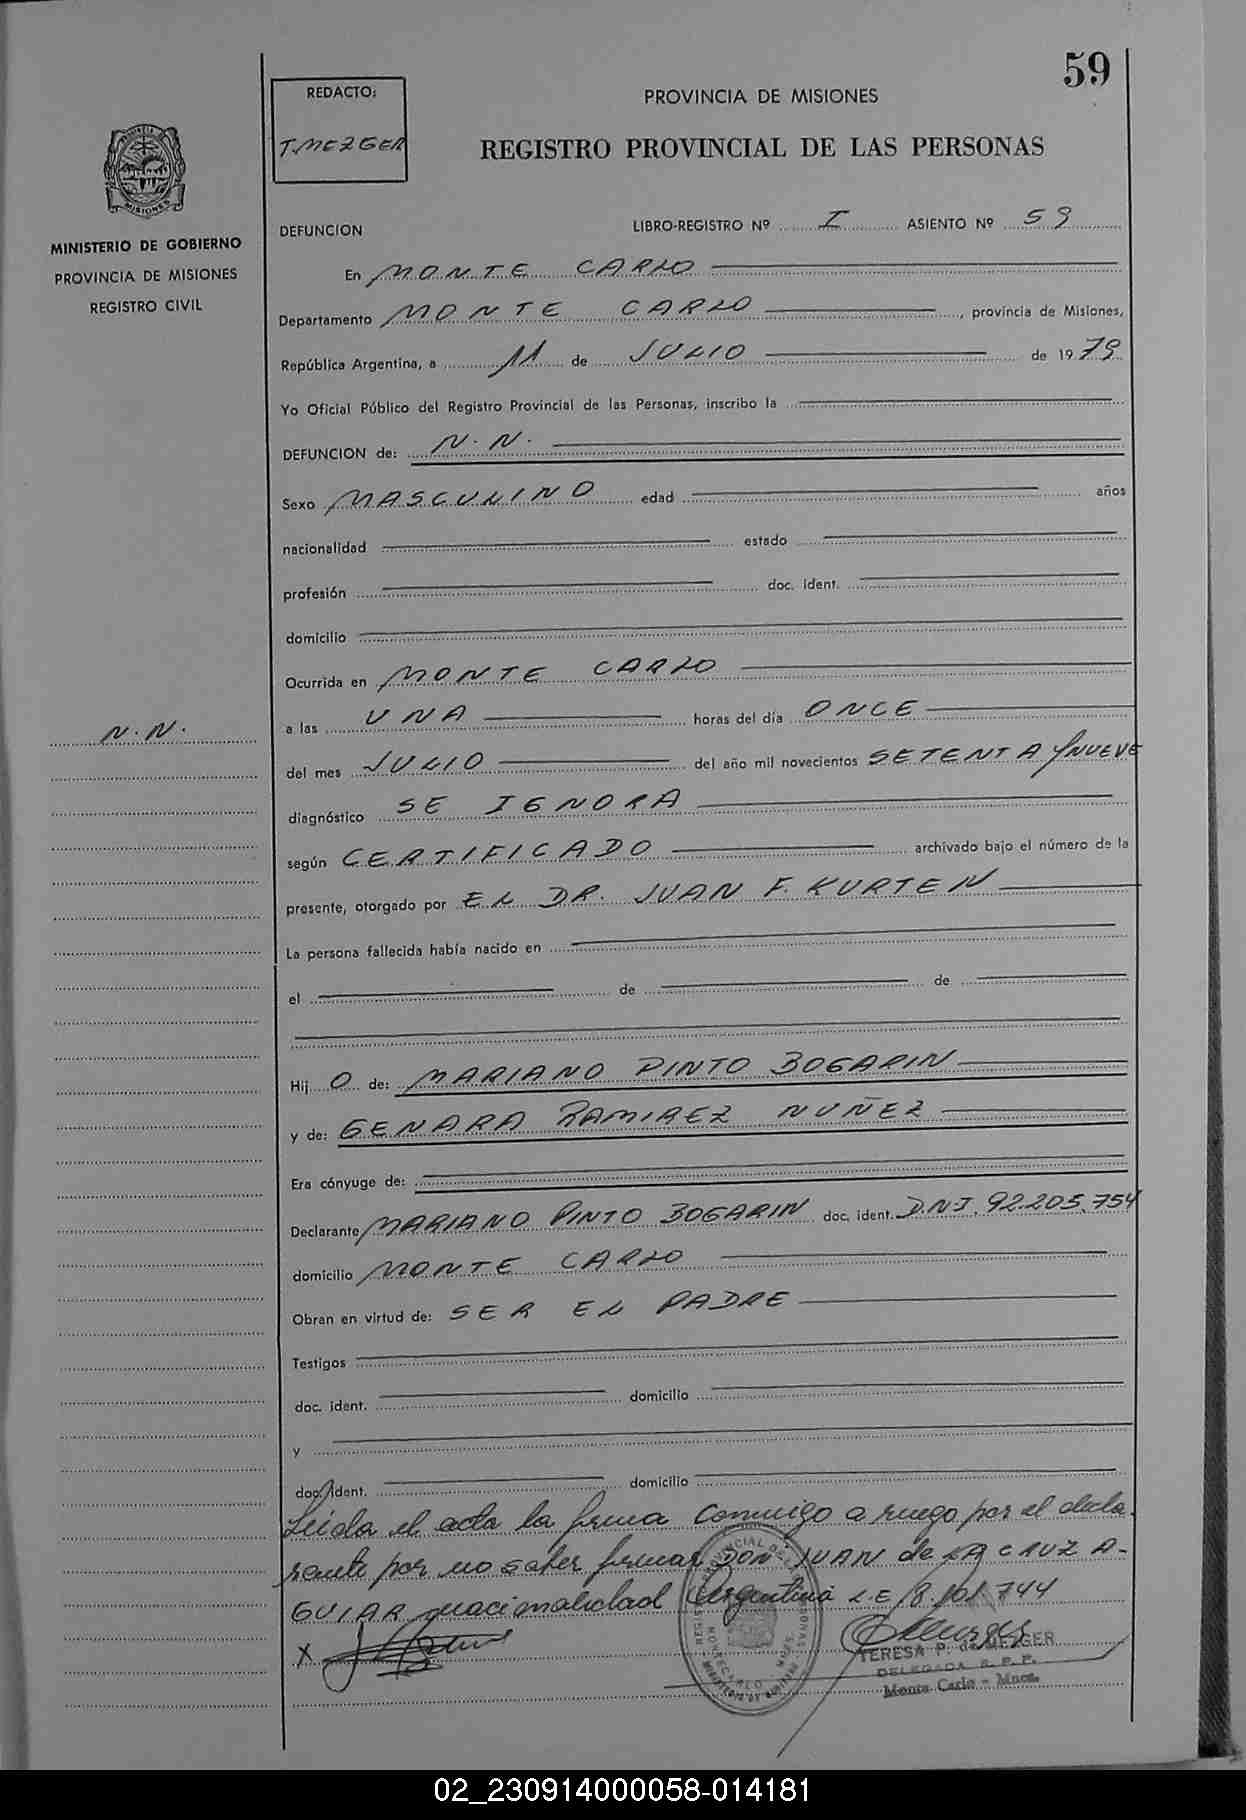 59
REDACTO:
T. MEZGER
PROVINCIA DE MISIONES
REGISTRO PROVINCIAL DE LAS PERSONAS
MISIONES
MINISTERIO DE GOBIERNO
PROVINCIA DE MISIONES
REGISTRO CIVIL
DEFUNCION LIBRO-REGISTRO Nº I ASIENTO Nº 59
En MONTE CARLO
Departamento MONTE CARLO, provincia de Misiones,
República Argentina, a 11 de JULIO de 1979
Yo Oficial Público del Registro Provincial de las Personas, inscribo la
DEFUNCION de: N. N.
Sexo MASCULINO edad años
nacionalidad estado
profesión doc. ident.
domicilio
Ocurrida en MONTE CARLO
N. N.
a las UNA horas del día ONCE
del mes JULIO del año mil novecientos SETENTA Y NUEVE
diagnóstico SE IGNORA
según CERTIFICADO archivado bajo el número de la
presente, otorgado por EL DR. JUAN F. KURTEN
La persona fallecida había nacido en
el de de
Hij O de: MARIANO PINTO BOGARIN
y de: GENARA RAMIREZ NUÑEZ
Era cónyuge de:
Declarante MARIANO PINTO BOGARIN doc. ident. D.N.I. 92.205.754
domicilio MONTE CARLO
Obran en virtud de: SER EL PADRE
Testigos
doc. ident. domicilio
y
doc. ident. domicilio
Leida el acta la firma conmigo a ruego por el decla-
rante por no saber firmar DON JUAN de LA CRUZ A-
GUIAR nacionalidad Argentina L.E 8.101.744
X
TERESA P. de MEZGER
DELEGADA R. P. P.
Monte Carlo - Mnes.
02_230914000058-014181